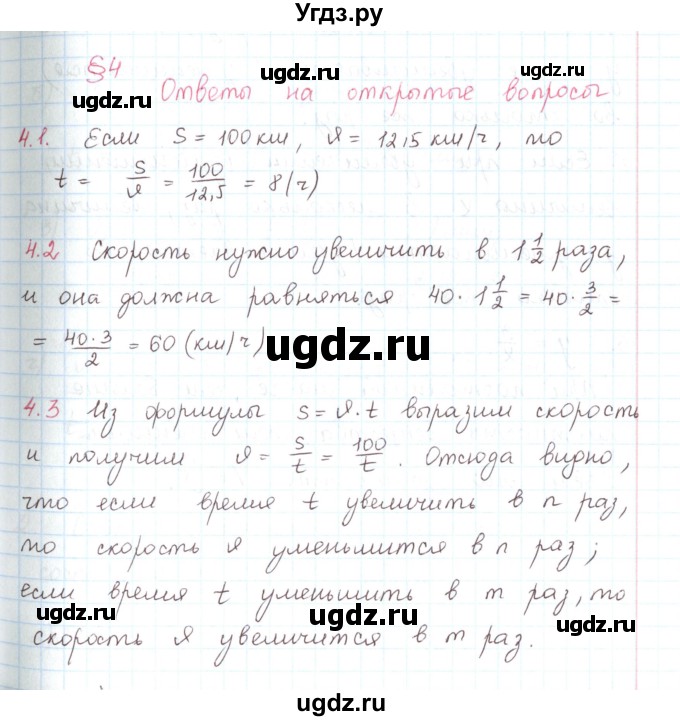 Угдз.ру
§4
Ответы на открытые вопросы
4.1. Если S = 100 км, υ = 12,5 км/ч, то
t = S/υ = 100/12,5 = 8 (ч)
4.2 Скорость нужно увеличить в 1 1/2 раза,
и она должна равняться 40 · 1 1/2 = 40 · 3/2 =
= 40·3/2 = 60 (км/ч)
4.3 Из формулы S = υ·t выразим скорость
и получим υ = S/t = 100/t. Отсюда видно,
что если время t увеличить в n раз,
то скорость υ уменьшится в n раз;
если время t уменьшить в m раз, то
скорость υ увеличится в m раз.
ugdz.ru
ugdz.ru
ugdz.ru
ugdz.ru
ugdz.ru
ugdz.ru
ugdz.ru
ugdz.ru
ugdz.ru
ugdz.ru